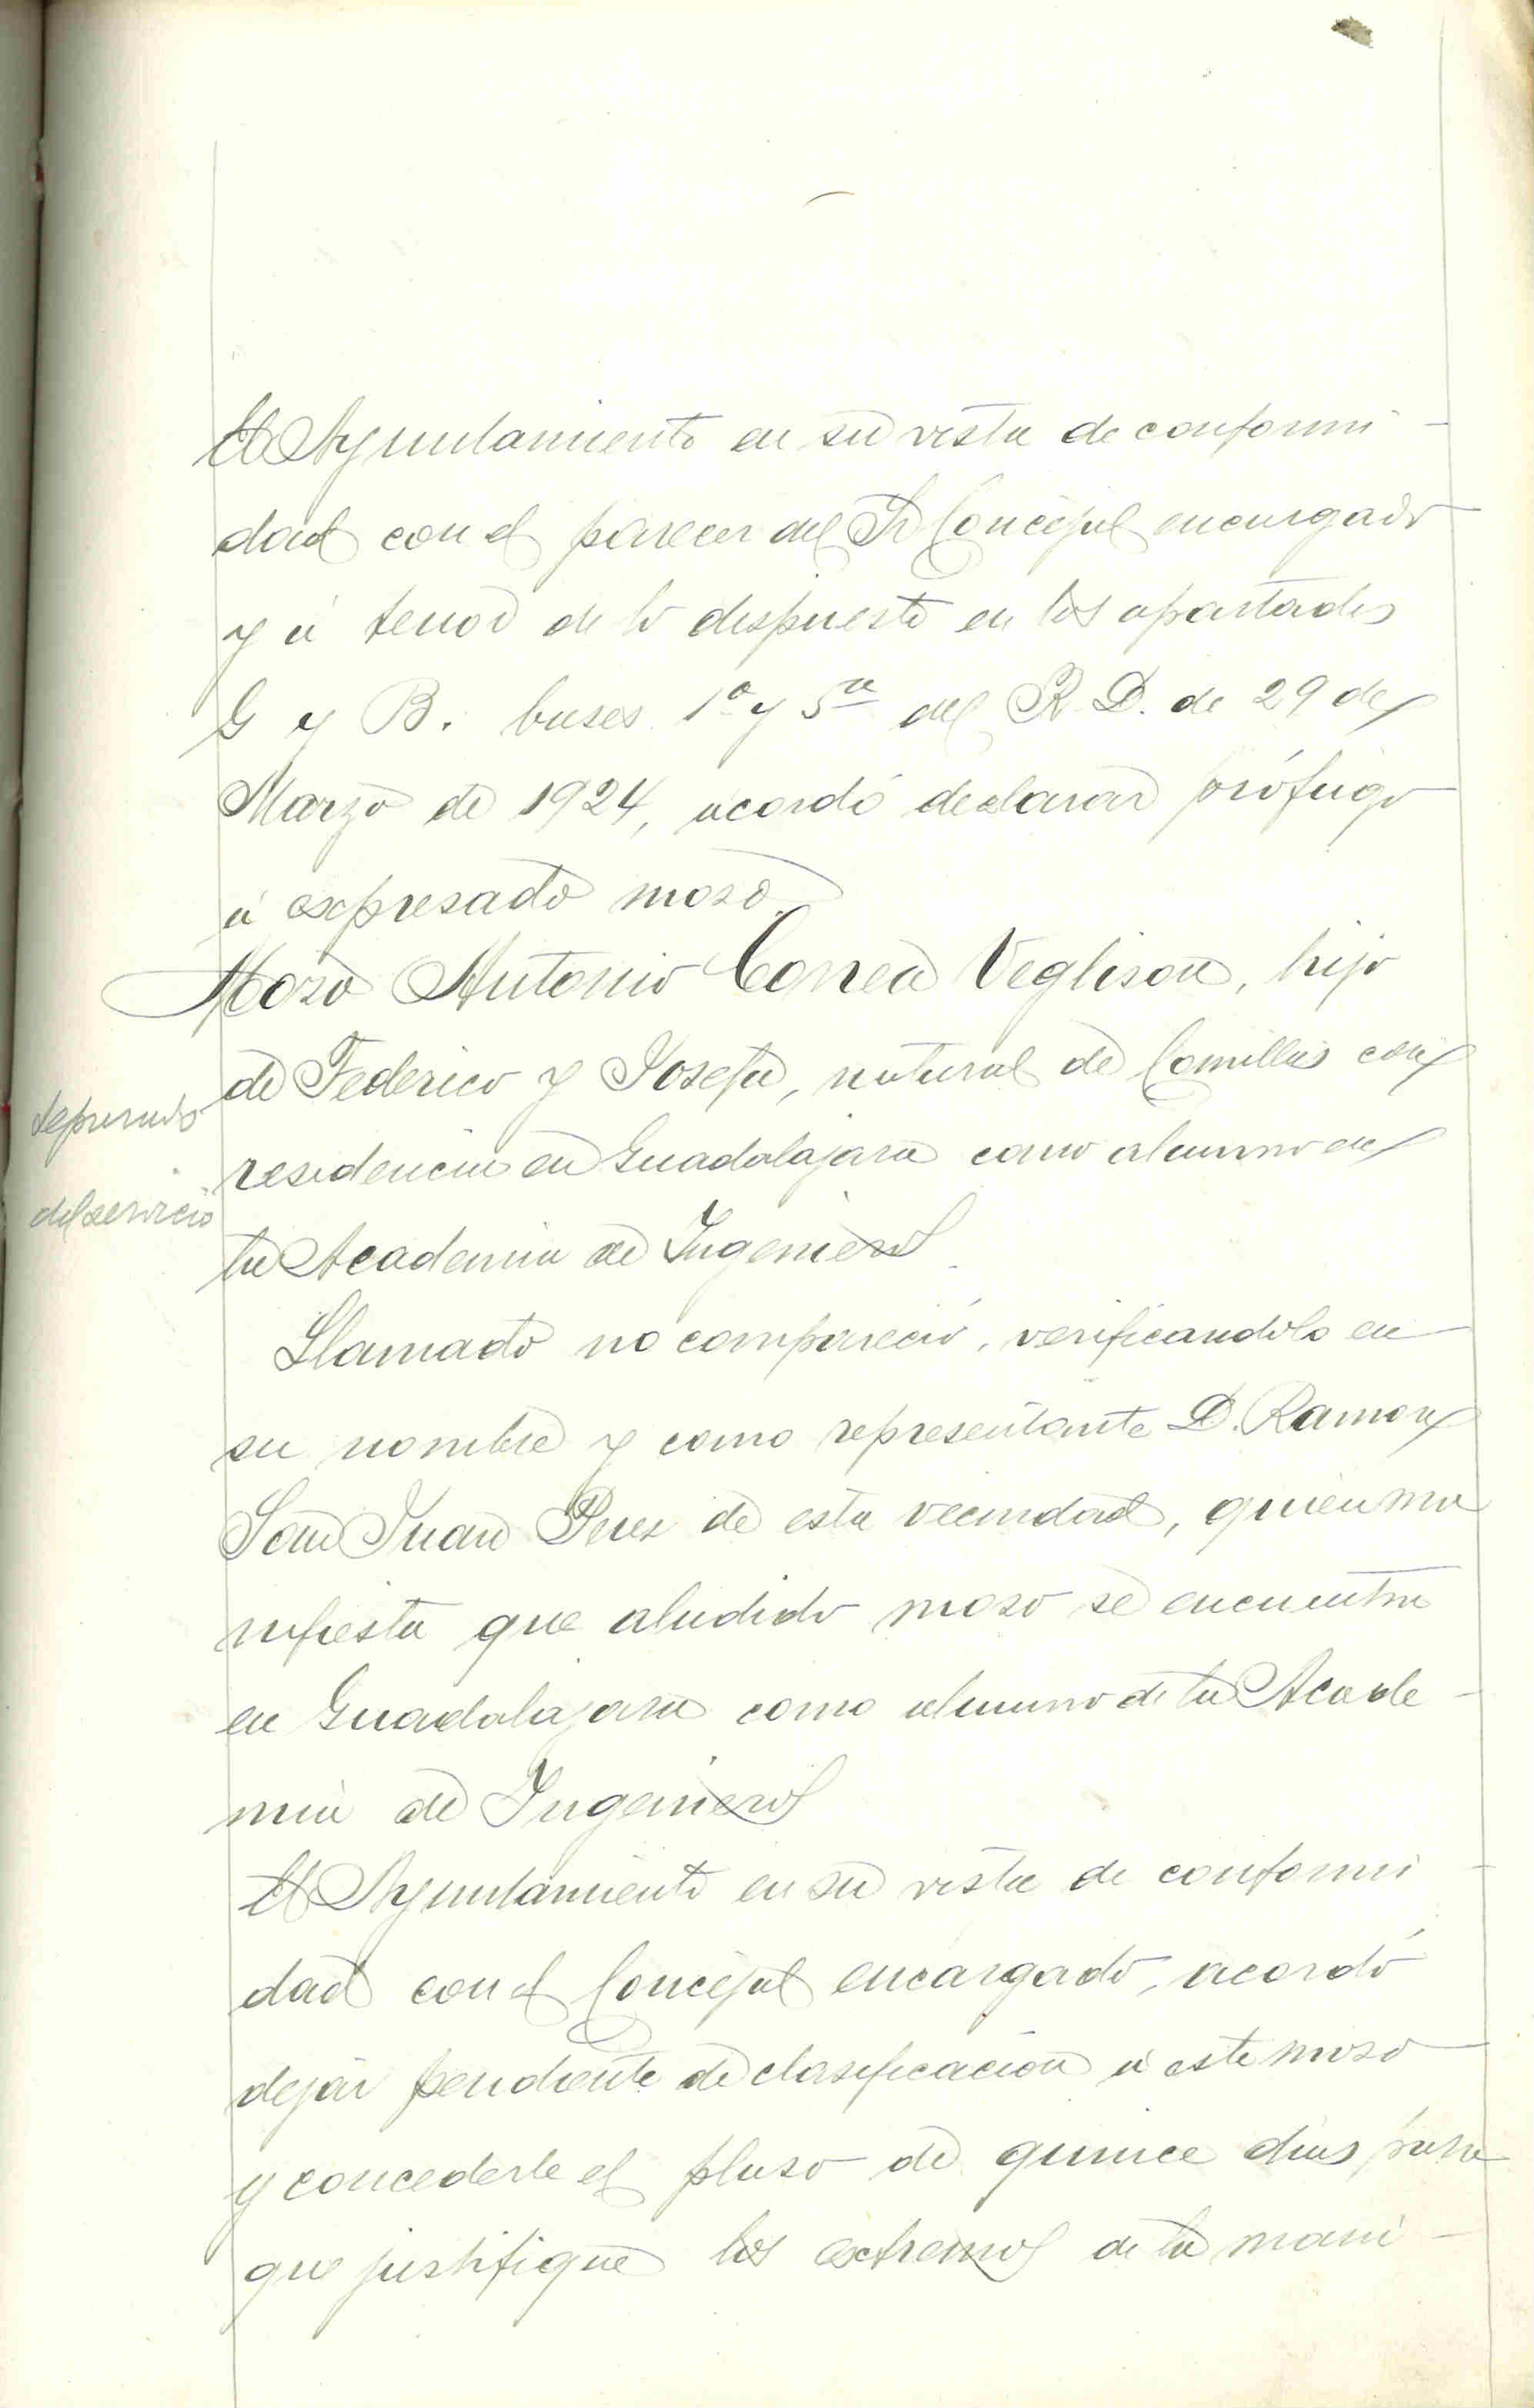 El Ayuntamiento en su vista de conformi-
dad con el parecer del Sr Concejal encargado
y á tenor de lo dispuesto en los apartados
G y B. bases 1ª y 5ª del R. D. de 29 de
Marzo de 1924, acordó declarar prófugo
á expresado mozo.
Mozo Antonio Correa Veglison, hijo
de Federico y Josefa, natural de Comillas con
residencia en Guadalajara como alumno en
la Academia de Ingenieros
del servicio
Llamado no compareció, verificandolo en
su nombre y como representante D. Ramon
San Juan Perez de esta vecindad, quien ma
nifiesta que aludido mozo se encuentra
en Guadalajara como alumno de la Acade-
mia de Ingenieros
El Ayuntamiento en su vista de conformi-
dad con el Concejal encargado, acordó
dejar pendiente de clasificacion á este mozo
y concederle el plazo de quince dias para
que justifique los extremos de la mani-